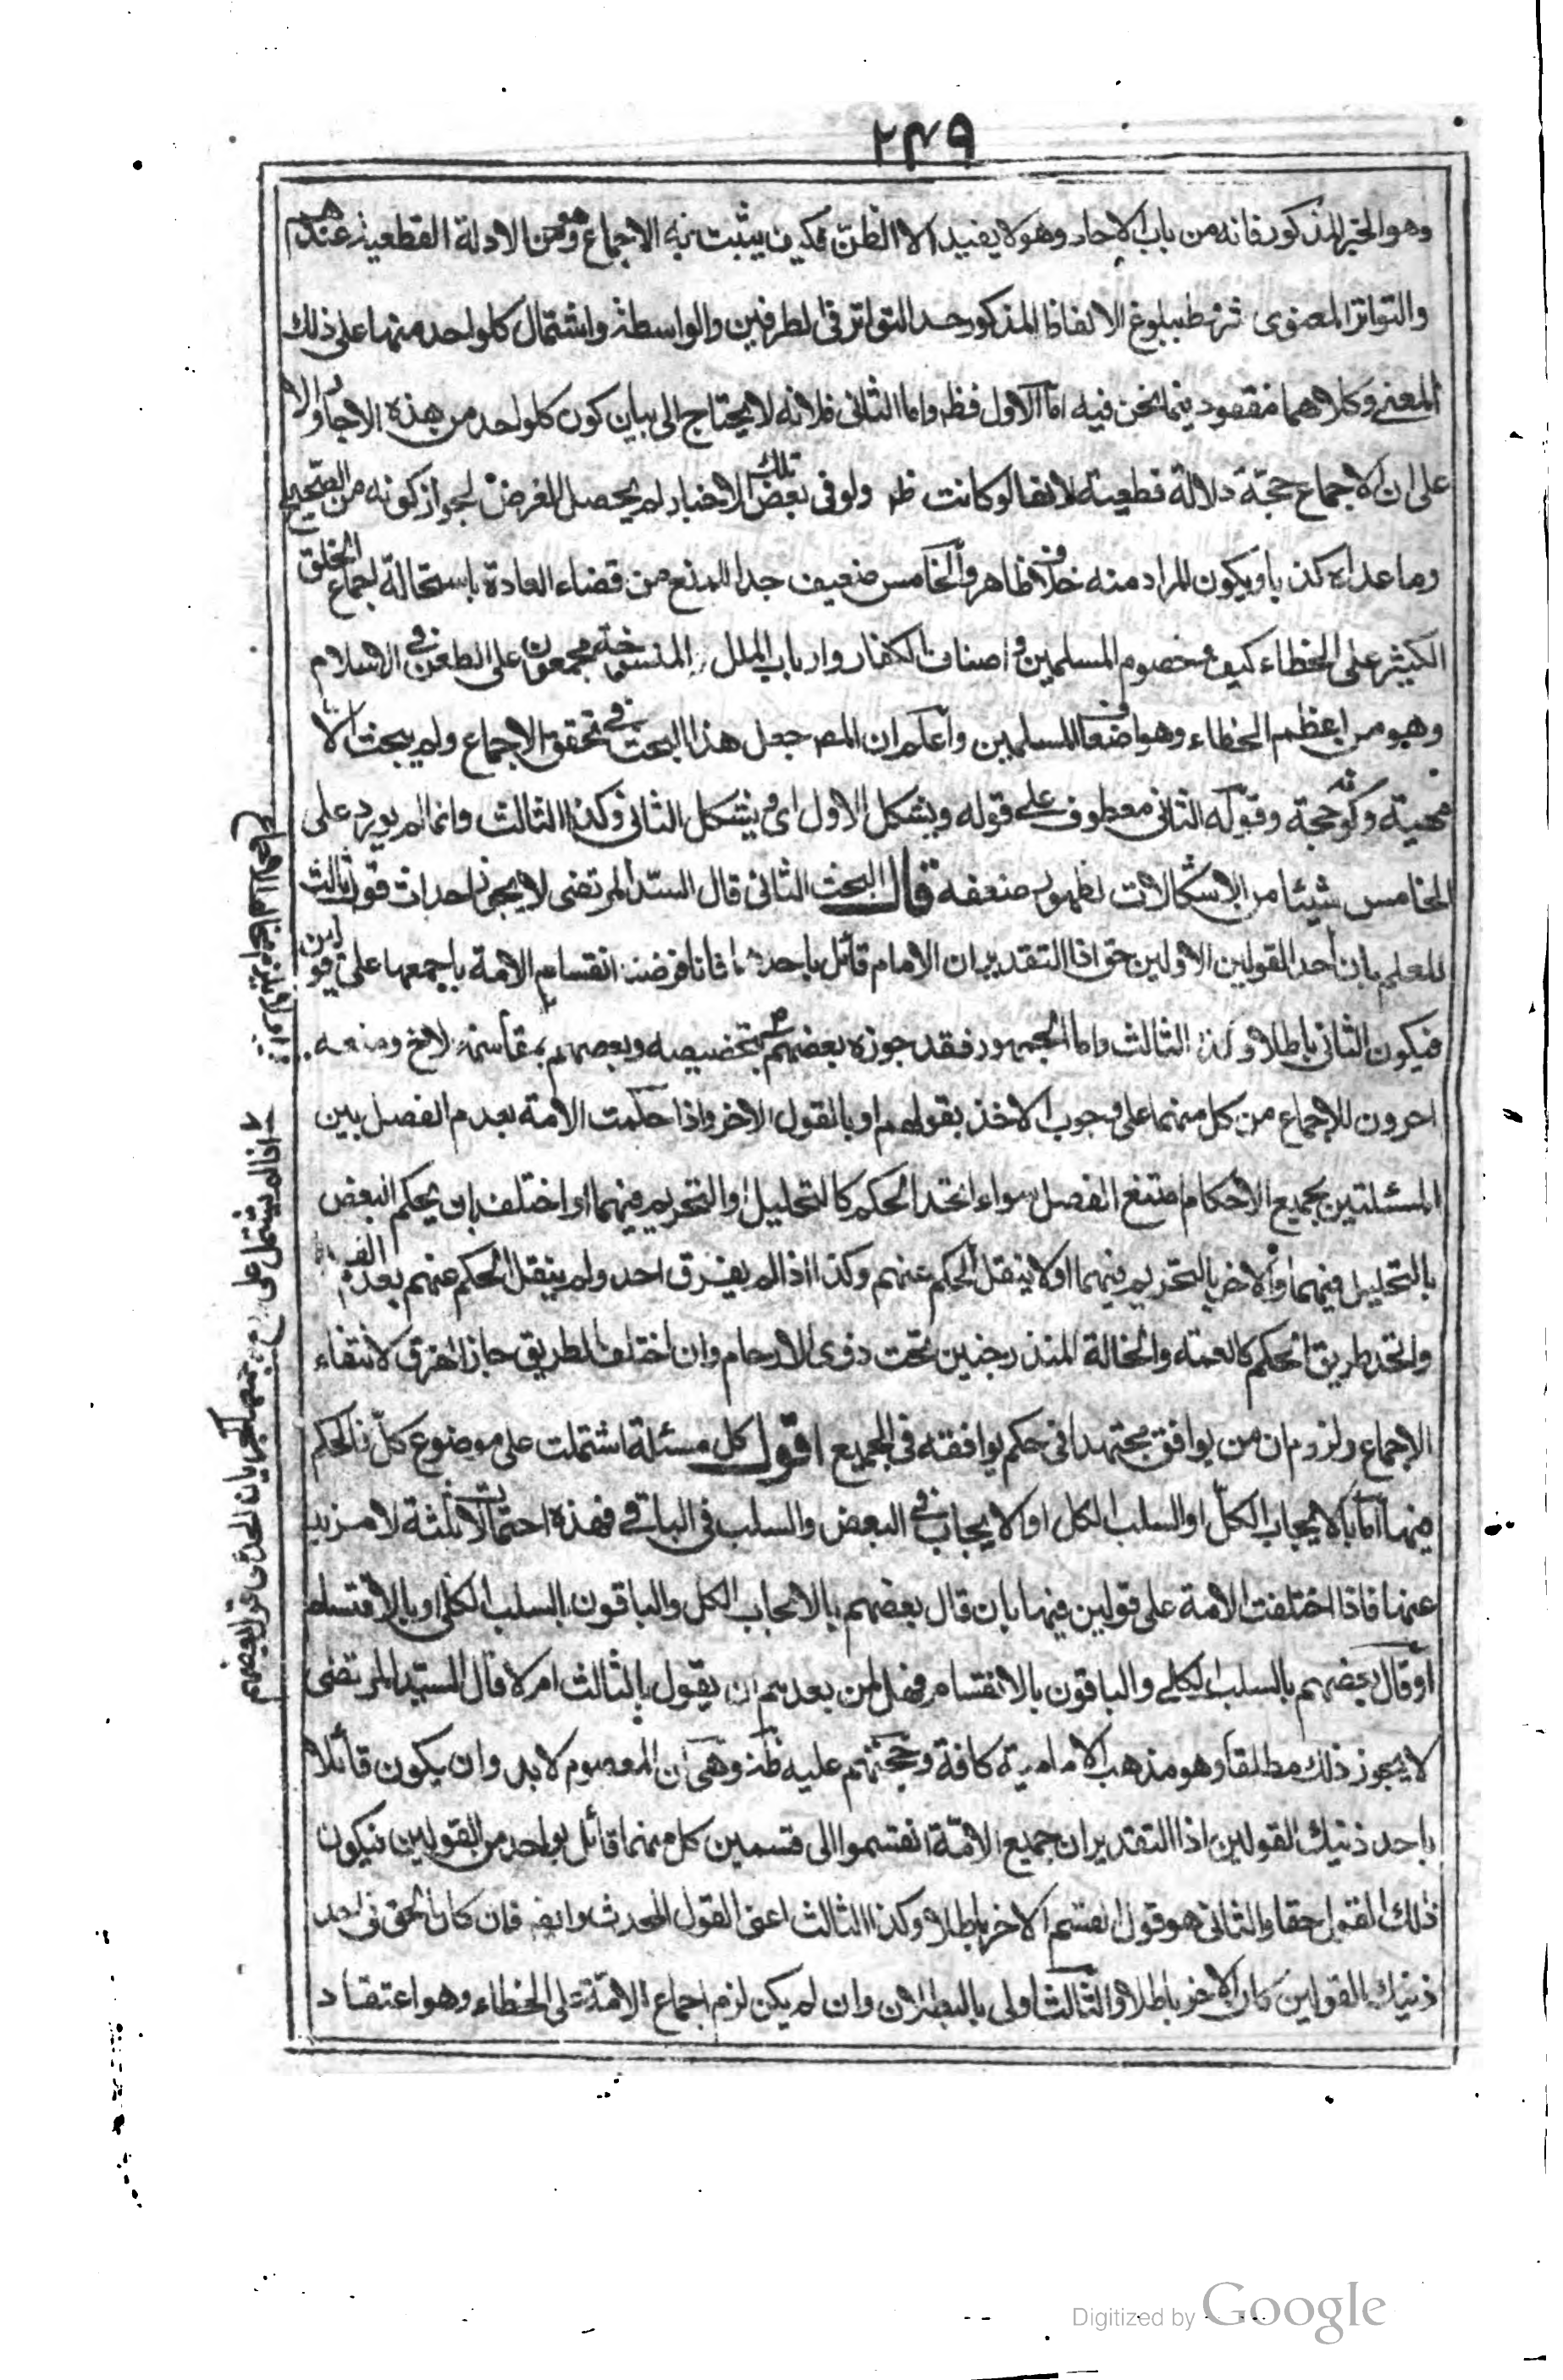 ٢٣٩
وهو الخبر المذكور فانه من باب الاحاد وهو لا يفيد الا الظن فكيف يثبت به الاجماع وهو من الادلة القطعية عندهم
والتواتر المعنوى شرطه بلوغ الالفاظ المذكور حد التواتر فى الطرفين والواسطة واشتمال كلواحد منها على ذلك
المعنى وكلاهما مفقود فيما نحن فيه اما الاول فظ واما الثانى فلانه لا يحتاج الى بيان كون كلواحد من هذه الاخبار والا
على ان الاجماع حجة دلالة قطعية لانها لو كانت ظ ولو فى بعض تلك الاخبار لم يحصل الغرض لجواز كونه من الصحيح
وما عداه كذبا ويكون المراد منه خلاف ظاهره والخامس ضعيف جدا للمنع من قضاء العادة باستحالة اجماع الخلق
الكثير على الخطاء كيف وخصوم المسلمين و اصناف الكفار وارباب الملل المنسوخة مجمعون على الطعن فى الاسلام
وهو من اعظم الخطاء وهو اضعاف المسلمين واعلم ان المص جعل هذا البحث فى تحقق الاجماع ولم يبحث الا
مهيته وكونه حجة وقوله الثانى معطوف على قوله ويشكل الاول اى ويشكل الثانى وكذا الثالث وانما لم يورد على
الخامس شيئا من الاشكالات لظهور ضعفه قال البحث الثانى قال السيد المرتضى لا يجوز احداث قول ثالث
للعلم بان احد القولين الاولين حق اذ التقدير ان الامام قائل باحدهما فانا فرضنا انقسام الامة باجمعها على قولين
فيكون الثانى باطلا وكذا الثالث واما الجمهور فقد جوزه بعضهم بتخصيصه وبعضهم بمقاسمة لا فخ ومنعه
اخرون للاجماع من كل منهما على وجوب الاخذ بقولهم او بالقول الاخر واذا حكمت الامة بعدم الفصل بين
المسئلتين بجميع الاحكام امتنع الفصل سواء اتحد الحكم كالتحليل او التحريم فيهما او اختلف بان يحكم البعض
بالتحليل فيهما والاخر بالتحريم فيهما او لا ينقل الحكم عنهم وكذا اذا لم يفرق احد ولم ينقل الحكم عنهم بعدم الفرق
واتحد طريق الحكم كالعمة والخالة المندرجتين تحت ذوى الارحام وان اختلف الطريق جاز الفرق لانتفاء
الاجماع ولزوم ان من يوافق مجتهدا فى حكم يوافقه فى الجميع اقول كل مسئلة اشتملت على موضوع كل فالحكم
فيها اما بالايجاب الكل او السلب الكل او الايجاب فى البعض والسلب فى الباقى فهذه احتمالات ثلثة لا مزيد
عنها فاذا اختلفت الامة على قولين فيها بان قال بعضهم بالايجاب الكل والباقون بالسلب الكلى او بالاقتسام
او قال بعضهم بالسلب الكلى والباقون بالانقسام فهل لمن بعدهم ان يقول بالثالث ام لا قال السيد المرتضى
لا يجوز ذلك مطلقا وهو مذهب الامامية كافة وحجتهم عليه ظ وهى ان المعصوم لابد وان يكون قائلا
باحد ذنيك القولين اذ التقدير ان جميع الامة انقسموا الى قسمين كل منهما قائل بواحد من القولين فيكون
ذلك القول حقا والثانى هو قول القسم الاخر باطلا وكذا الثالث اعنى القول المحدث وايض فان كان الحق فى احد
ذنيك القولين كان الاخر باطلا والثالث اولى بالبطلان وان لم يكن لزم اجماع الامة على الخطاء وهو اعتقاد
اذا لم يشتمل على
Digitized by Google